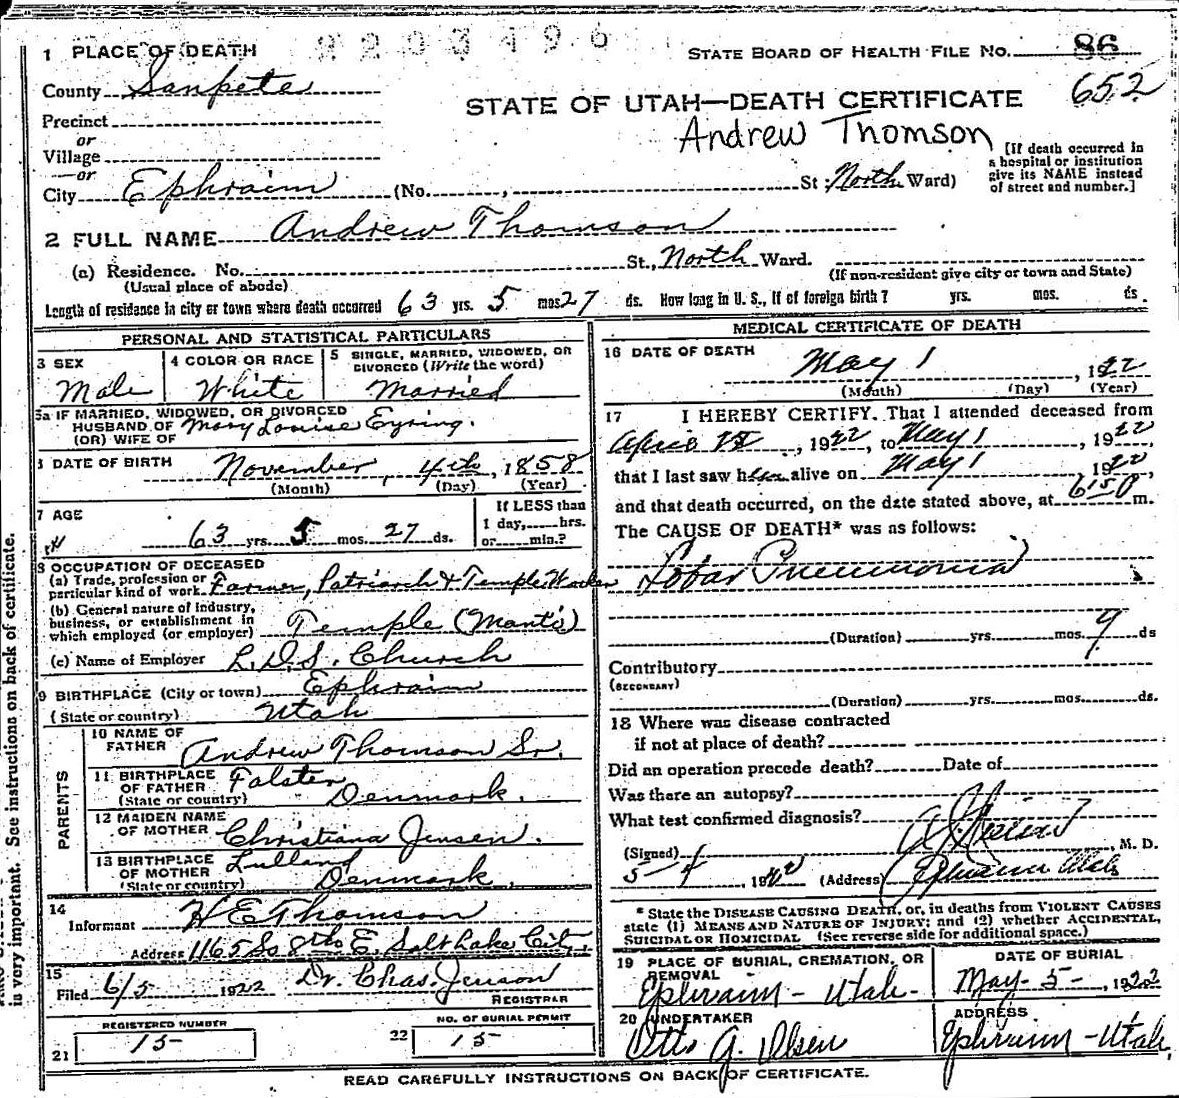 2203496
1 PLACE OF DEATH
STATE BOARD OF HEALTH FILE NO. 86
652
County Sanpete
STATE OF UTAH—DEATH CERTIFICATE
Andrew Thomson
Precinct
or
Village
or
City Ephraim (No. , St; North Ward)
[If death occurred in
a hospital or institution
give its NAME instead
of street and number.]
2 FULL NAME Andrew Thomson
(a) Residence. No. St., North Ward.
(Usual place of abode)
(If non-resident give city or town and State)
Length of residence in city or town where death occurred 63 yrs. 5 mos 27 ds. How long in U. S., if of foreign birth? yrs. mos. ds.
PERSONAL AND STATISTICAL PARTICULARS
3 SEX
Male
4 COLOR OR RACE
White
5 SINGLE, MARRIED, WIDOWED, OR
DIVORCED (Write the word)
Married
5a IF MARRIED, WIDOWED, OR DIVORCED
HUSBAND OF Mary Louise Eyring.
(OR) WIFE OF
DATE OF BIRTH November, 4th, 1858
(Month) (Day) (Year)
7 AGE
63 yrs. 5 mos. 27 ds.
If LESS than
1 day, hrs.
or min.?
8 OCCUPATION OF DECEASED
(a) Trade, profession or
particular kind of work Farmer, Patriarch & Temple Worker
(b) General nature of Industry,
business, or establishment in
which employed (or employer) Temple (Manti)
(c) Name of Employer L.D.S. Church
9 BIRTHPLACE (City or town) Ephraim
(State or country) Utah
PARENTS
10 NAME OF
FATHER Andrew Thomson Sr.
11 BIRTHPLACE
OF FATHER Falster
(State or country) Denmark.
12 MAIDEN NAME
OF MOTHER Christiana Jensen.
13 BIRTHPLACE
OF MOTHER Lulland
(State or country) Denmark.
14
Informant H E Thomson
Address 1165 So 8th E. Salt Lake City.
15
Filed 6/5 1922 Dr. Chas. Jenson
REGISTRAR
REGISTERED NUMBER
21 15
NO. OF BURIAL PERMIT
22 15
MEDICAL CERTIFICATE OF DEATH
16 DATE OF DEATH
May 1, 1922
(Month) (Day) (Year)
17 I HEREBY CERTIFY. That I attended deceased from
April, 1922, to May 1, 1922
that I last saw him alive on May 1 1922,
and that death occurred, on the date stated above, at 6:50 m.
The CAUSE OF DEATH* was as follows:
Lobar Pneumonia
(Duration) yrs. mos. 9 ds
Contributory
(SECONDARY)
(Duration) yrs. mos. ds.
18 Where was disease contracted
if not at place of death?
Did an operation precede death? Date of
Was there an autopsy?
What test confirmed diagnosis?
(Signed) , M. D.
5-4, 1922 (Address) Ephraim Utah
* State the DISEASE CAUSING DEATH, or, in deaths from VIOLENT CAUSES
state (1) MEANS AND NATURE OF INJURY; and (2) whether ACCIDENTAL,
SUICIDAL OR HOMICIDAL (See reverse side for additional space.)
19 PLACE OF BURIAL, CREMATION, OR
REMOVAL
Ephraim - Utah -
DATE OF BURIAL
May - 5 -, 1922
20 UNDERTAKER
Otto G. Olsen
ADDRESS
Ephraim - Utah,
READ CAREFULLY INSTRUCTIONS ON BACK OF CERTIFICATE.
is very important. See instructions on back of certificate.